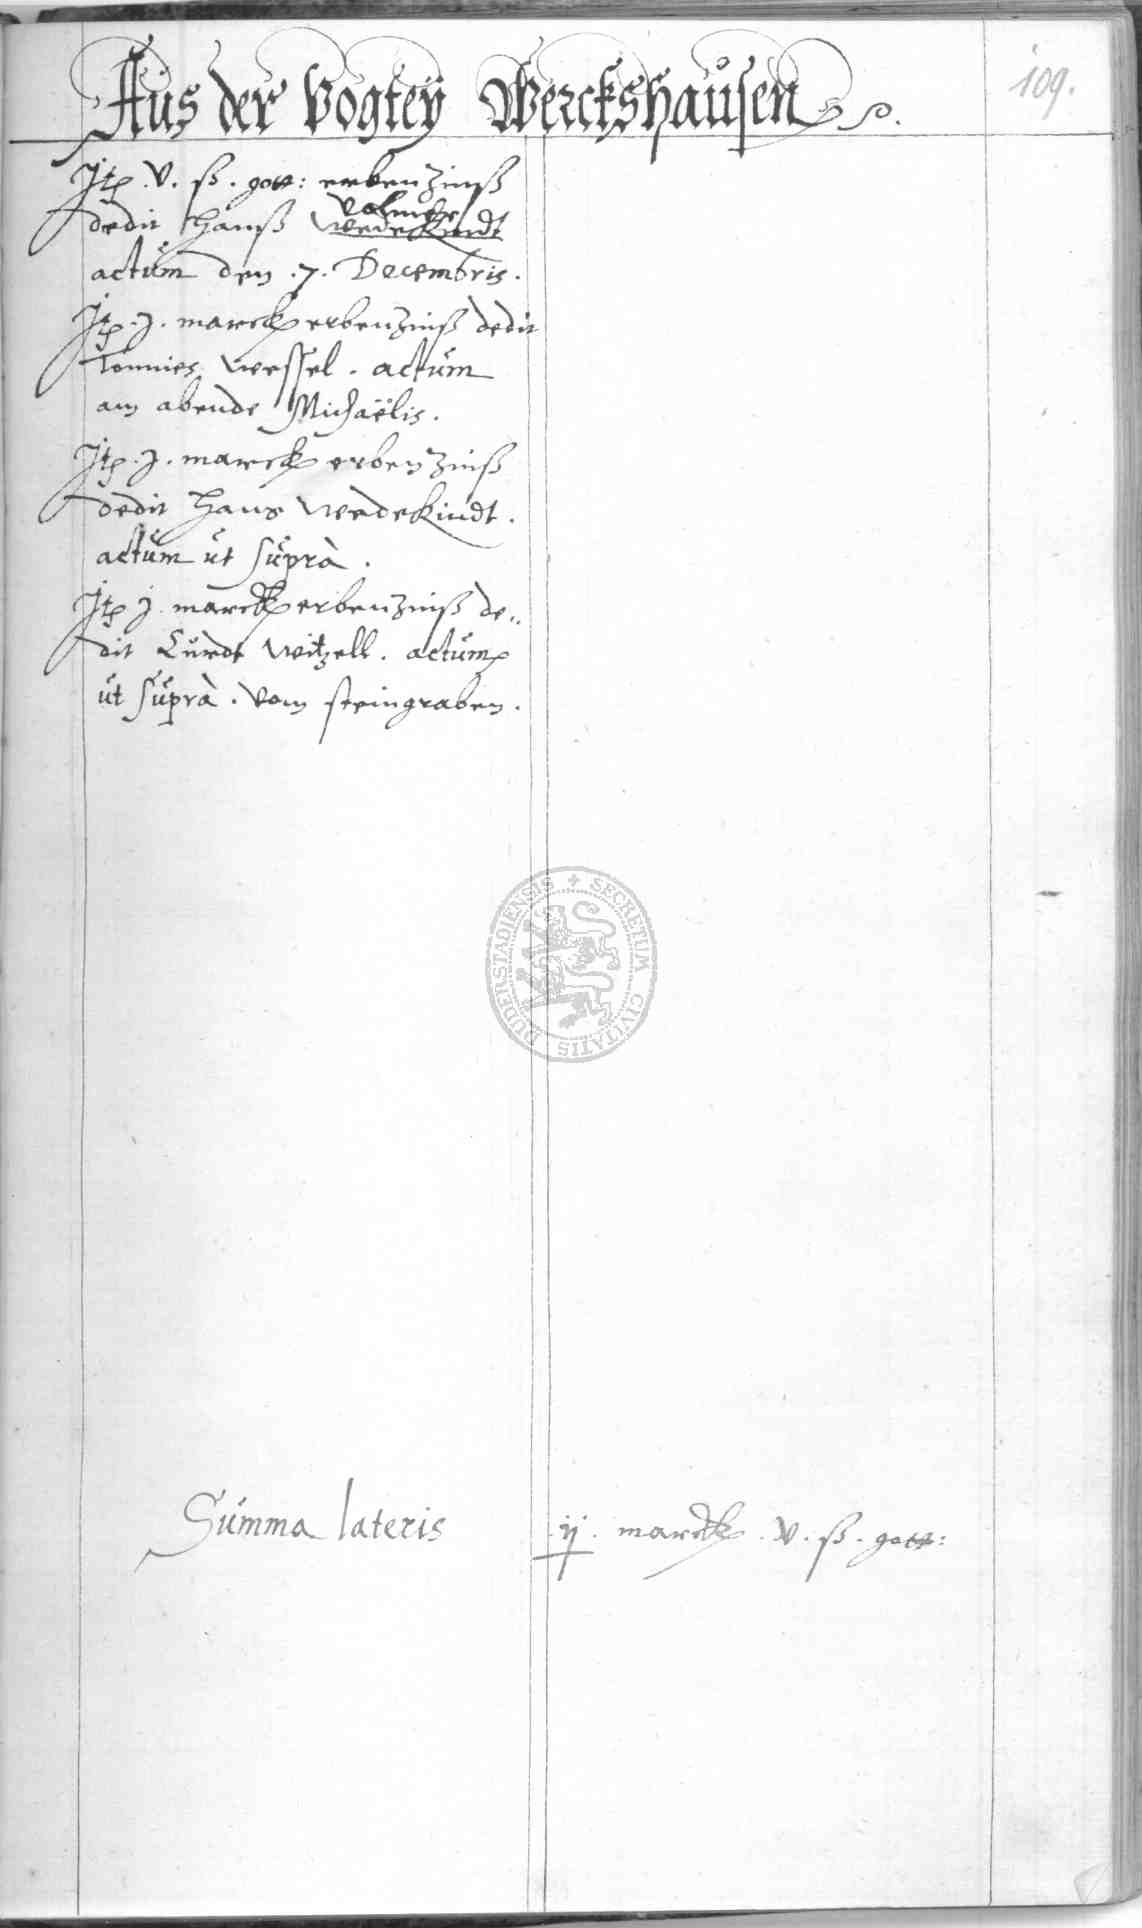 109.
Aus der Vogtey Werckshausen
Itē. v. ß. gott: erbenzinß
Volmeke
dedit Hanß Wedekindt
actum den .7. Decembris.
Itē. j. marck erbenzinß dedit
Tönnies Wessel. actum
am abende Michaëlis.
Itē. j. marck erbenzinß
dedit Hans Wedekindt.
actum ut suprà.
Itē j. marck erbenzinß de„
dit Curdt Witzell. actum
ut suprà. vom steingraben.
SECRETUM CIVITATIS DUDERSTADIENSIS
Summa lateris ij. marck. v. ß. gott: